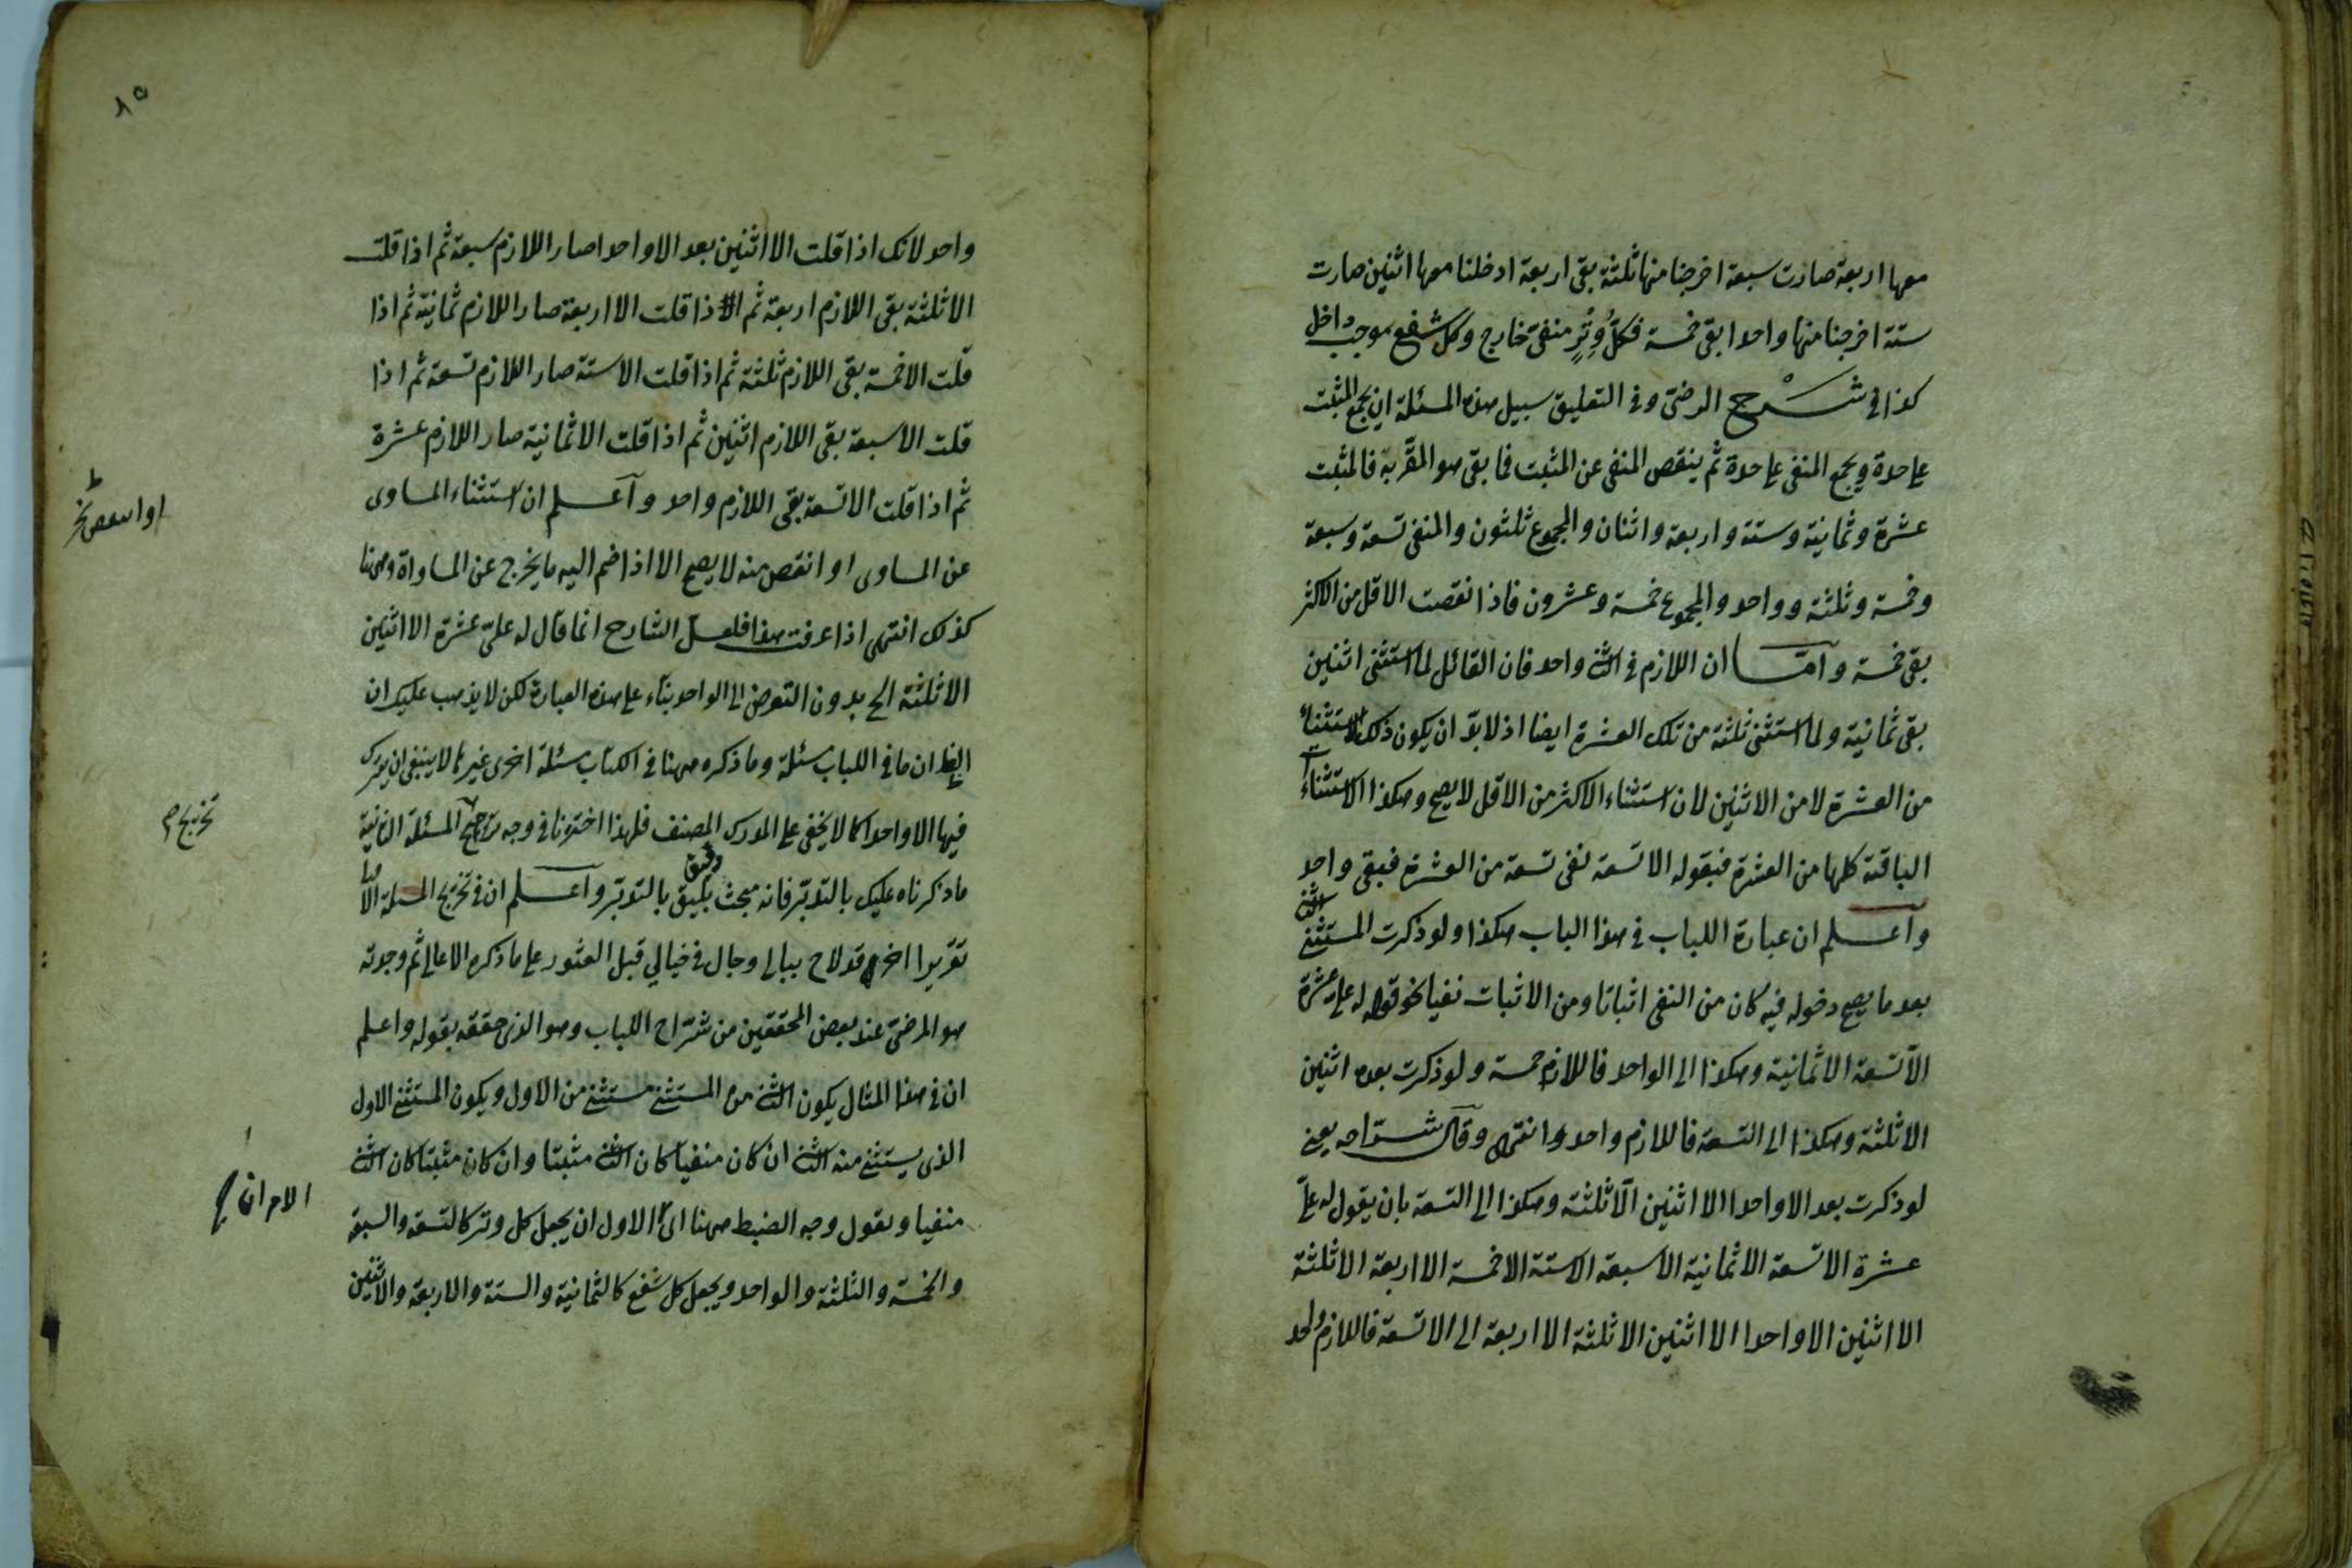 معها اربعة صارت سبعة اخرجنا منها ثلثة بقى اربعة ادخلنا معها اثنين صارت
ستة اخرجنا منها واحدا بقى خمسة فكلُّ وِتْرٍ منفى خارج وكل شفع موجب داخل
كذا فى شرح الرضى وفى التعليق سبيل هذه المسئلة ان يجمع المثبت
على حدة ويجمع المنفى على حدة ثم ينقص المنفى عن المثبت فما بقى هو المقربة فالمثبت
عشرة وثمانية وستة واربعة واثنان والمجموع ثلثون والمنفى تسعة وسبعة
وخمسة وثلثة وواحد والمجموع خمسة وعشرون فاذا نقصت الاقل من الاكثر
بقى خمسة وامّا ان اللازم فى الثنے واحد فان القائل لما استثنى اثنين
بقى ثمانية ولما استثنى ثلثة من تلك العشرة ايضا اذ لابدّ ان يكون ذلك الاستثناء
من العشرة لا من الاثنين لان استثناء الاكثر من الاقل لا يصح وهكذا الاستثناء
الباقية كلها من العشرة فبقوله الا تسعة نفى تسعة من العشرة فبقى واحد
واعلم ان عبارة اللباب فى هذا الباب هكذا ولو ذكرت المستثنے الثنے
بعد ما يصح دخوله فيه كان من النفى اثباتا ومن الاثبات نفيا نحو قوله له على عشرة
الّا تسعة الا ثمانية وهكذا الى الواحد فاللازم خمسة ولو ذكرت بعده اثنين
الا ثلثة وهكذا الى التسعة فاللازم واحد انتهى وقال شرّاحه يعنے
لو ذكرت بعد الا واحدا الا اثنين الّا ثلثة وهكذا الى التسعة بان يقول له علىّ
عشرة الا تسعة الا ثمانية الا سبعة الا ستة الا خمسة الا اربعة الا ثلثة
الا اثنين الا واحدا الا اثنين الا ثلثة الا اربعة الى الا تسعة فاللازم واحد
٨٥
واحد لانك اذا قلت الا اثنين بعد الا واحدا صار اللازم سبعة ثم اذا قلت
الا ثلثة بقى اللازم اربعة ثم اذا قلت الا اربعة صار اللازم ثمانية ثم اذا
قلت الا خمسة بقى اللازم ثلثة ثم اذا قلت الا ستة صار اللازم تسعة ثم اذا
قلت الا سبعة بقى اللازم اثنين ثم اذا قلت الا ثمانية صار اللازم عشرة
ثم اذا قلت الا تسعة بقى اللازم واحد واعلم ان استثناء المساوى
عن المساوى او انقص منه لا يصح الا اذا ضم اليه ما يخرج عن المساواة وههنا
كذلك انتهى اذا عرفت هذا فلعلّ الشارح انما قال له علىّ عشرة الا اثنين
الا ثلثة الخ بدون التعرض الى الواحد بناء على هذه العبارة لكن لا يذهب عليك ان
ايضا ان ما فى اللباب مسئلة وما ذكره ههنا فى الكتاب مسئلة اخرى غيرها لا ينبغى ان يترك
فيها الا واحدا كما لا يخفى على المدرك المصنف فلهذا اخترنا فى وجه المسئلة الثانية
تخريج م
ما ذكرناه عليك بالتدبّر فانه مبحث دقيق يليق بالتدبّر واعلم ان فى تخريج المسئلة الا
تقريرا اخر قد لاح ببالى وجال فى خيالي قبل العثور على ما ذكره الاعالى ثم وجدته
هو المرضىّ عند بعض المحققين من شرّاح اللباب وهو الذى حققه بقوله واعلم
ان فى هذا المثال يكون الثنے من المستثنے مستثنے من الاول ويكون المستثنے الاول
الذى يستثنے منه الثنے ان كان منفيا كان الثنے مثبتا وان كان مثبتا كان الثنے
منفيا ويقول وجه الضبط ههنا اى الاول ان يجعل كل وتر كالتسعة والسبعة
والخمسة والثلثة والواحد ويجعل كل شفع كالثمانية والستة والاربعة والاثنين